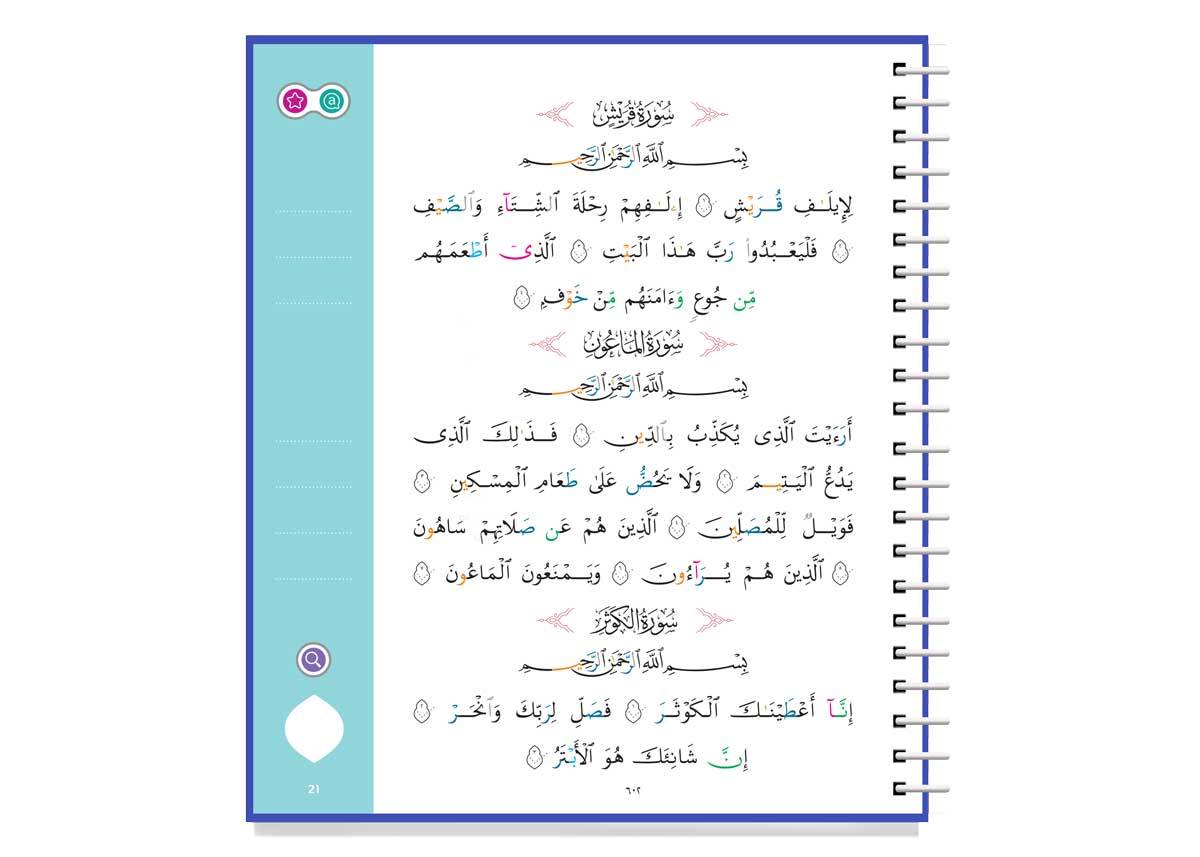 سُورَةُ قُرَيْشٍ
بِسْمِ ٱللَّهِ ٱلرَّحْمَٰنِ ٱلرَّحِيمِ
لِإِيلَـٰفِ قُرَيْشٍ ۝ إِۦلَـٰفِهِمْ رِحْلَةَ ٱلشِّتَآءِ وَٱلصَّيْفِ
۝ فَلْيَعْبُدُوا۟ رَبَّ هَـٰذَا ٱلْبَيْتِ ۝ ٱلَّذِىٓ أَطْعَمَهُم
مِّن جُوعٍ وَءَامَنَهُم مِّنْ خَوْفٍۭ ۝
سُورَةُ المَاعُونِ
بِسْمِ ٱللَّهِ ٱلرَّحْمَٰنِ ٱلرَّحِيمِ
أَرَءَيْتَ ٱلَّذِى يُكَذِّبُ بِٱلدِّينِ ۝ فَذَٰلِكَ ٱلَّذِى
يَدُعُّ ٱلْيَتِيمَ ۝ وَلَا يَحُضُّ عَلَىٰ طَعَامِ ٱلْمِسْكِينِ ۝
فَوَيْلٌ لِّلْمُصَلِّينَ ۝ ٱلَّذِينَ هُمْ عَن صَلَاتِهِمْ سَاهُونَ
۝ ٱلَّذِينَ هُمْ يُرَآءُونَ ۝ وَيَمْنَعُونَ ٱلْمَاعُونَ ۝
سُورَةُ الكَوْثَرِ
بِسْمِ ٱللَّهِ ٱلرَّحْمَٰنِ ٱلرَّحِيمِ
إِنَّآ أَعْطَيْنَـٰكَ ٱلْكَوْثَرَ ۝ فَصَلِّ لِرَبِّكَ وَٱنْحَرْ ۝
إِنَّ شَانِئَكَ هُوَ ٱلْأَبْتَرُ ۝
٦٠٢
a
21